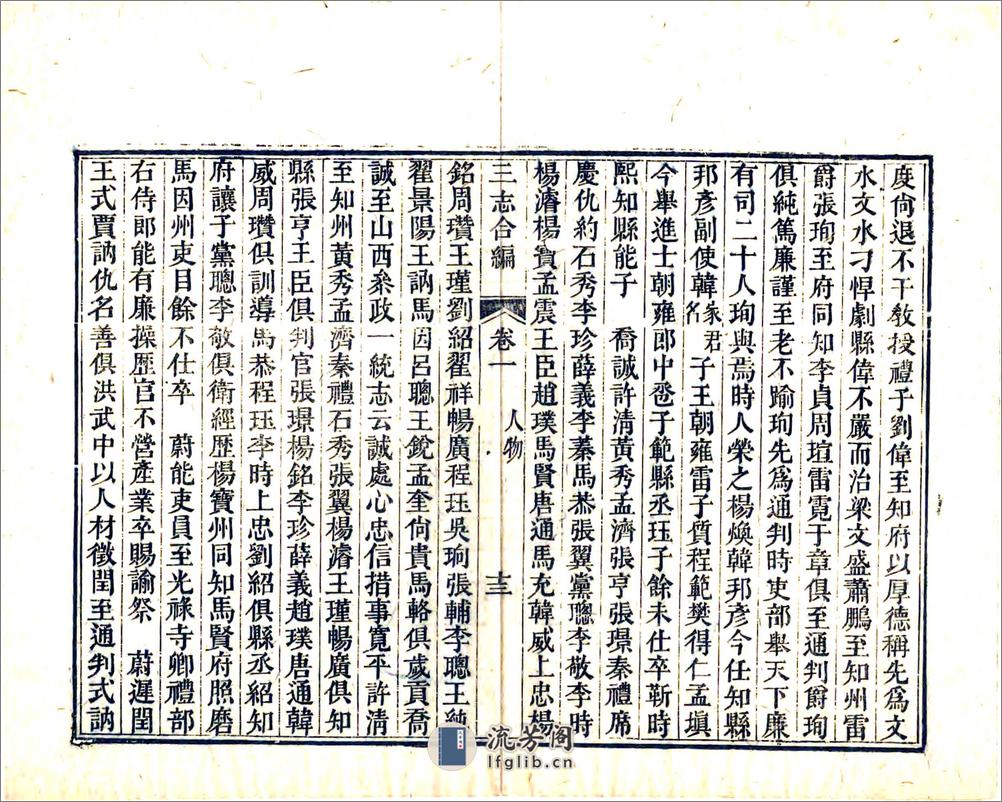 度尙退不干敎授禮子劉偉至知府以厚德稱先爲文
水文水刁悍劇縣偉不嚴而治梁文盛蕭鵬至知州雷
爵張珣至府同知李貞周瑄雷霓于章俱至通判爵珣
俱純篤廉謹至老不踰珣先爲通判時吏部舉天下廉
有司二十人珣與焉時人榮之楊煥韓邦彥今任知縣
邦彥副使韓家君名子王朝雍雷子質程範樊得仁孟塡
今舉進士朝雍郎中爸子範縣丞珏子餘未仕卒靳時
熙知縣能子　喬誠許淸黃秀孟濟張亨張璟秦禮席
慶仇約石秀李珍薛義李蓁馬恭張翼黨聰李敬李時
楊濬楊寶孟震王臣趙璞馬賢唐通馬充韓威上忠楊
三志合編　卷一　人物　十三
銘周瓚王瑾劉紹翟祥暢廣程珏吳珣張輔李聰王純
翟景陽王訥馬因呂聰王銳孟奎何貴馬輅俱歲貢喬
誠至山西叅政一統志云誠處心忠信措事寬平許淸
至知州黃秀孟濟秦禮石秀張翼楊濬王瑾暢廣俱知
縣張亨王臣俱判官張璟楊銘李珍薛義趙璞唐通韓
威周瓚俱訓導馬恭程珏李時上忠劉紹俱縣丞紹知
府讓子黨聰李敬俱衛經歷楊寶州同知馬賢府照磨
馬因州吏目餘不仕卒　蔚能吏員至光祿寺卿禮部
右侍郎能有廉操歷官不營產業卒賜諭祭　蔚遲閏
王式賈訥仇名善俱洪武中以人材徵閏至通判式訥
流芳阁
lfglib.cn